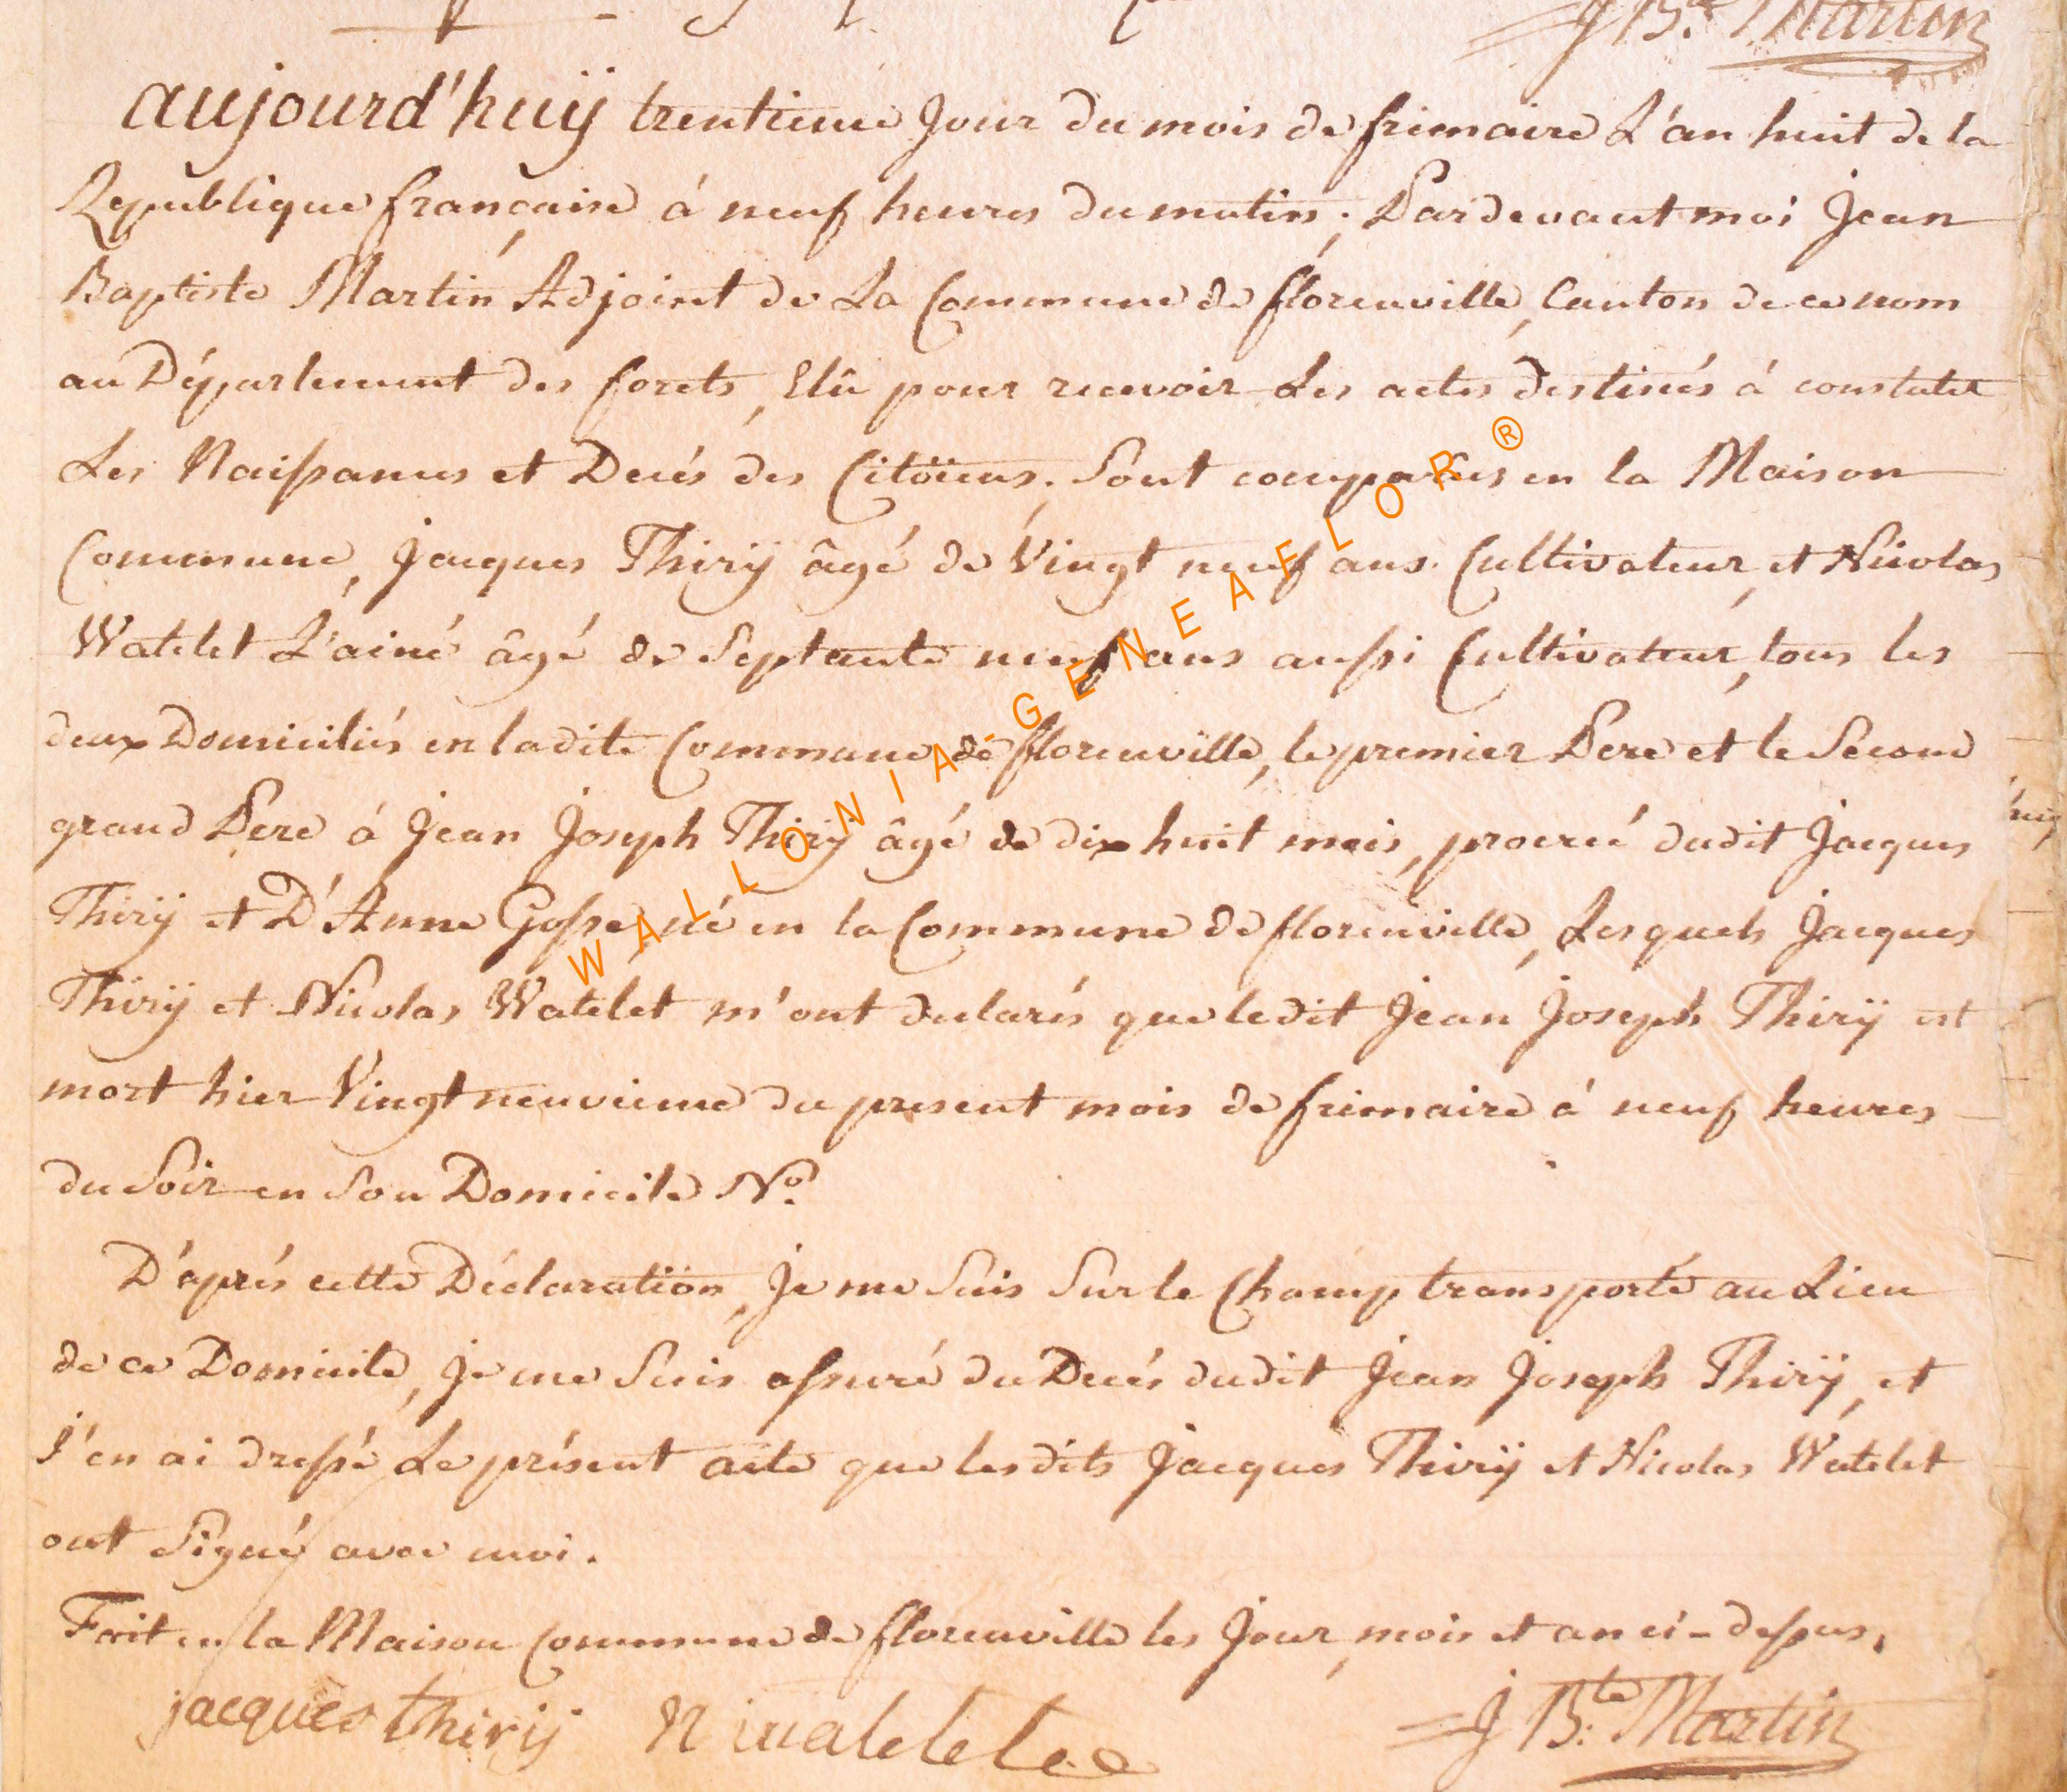 J B.te Martin
aujourd'huÿ trentieme Jour du mois de frimaire L'an huit de la
Republique française á neuf heures du matin; Pardevant moi Jean
Baptiste Martin Adjoint de La Commune de florenville, Canton de ce nom
au Département des forets, Elû pour recevoir Les actes destinés á constater
Les Naissances et Decés des Citöiens; Sont comparûs en la Maison
Commune, Jacques Thirÿ âgé de Vingt neuf ans Cultivateur, et Nicolas
Watelet L'ainé âgé de Septante neuf ans aussi Cultivateur, tous les
deux Domiciliés en ladite Commune de florenville, le premier Pere et le Second
grand Pere á Jean Joseph Thirÿ âgé de dix huit mois, procreé dudit Jacques
Thirÿ et D'Anne Gosse, né en la Commune de florenville, Lesquels Jacques
Thirÿ et Nicolas Watelet m'ont declarés que ledit Jean Joseph Thirÿ est
mort hier Vingt neuvieme du present mois de frimaire á neuf heures
du Soir en Son Domicile No.
D'aprés cette Déclaratiön, Je me Suis Sur le Champ transporté au Lieu
de ce Domicile, Je me Suis assuré du Decés dudit Jean Joseph Thirÿ, et
J'en ai dressé Le présent acte que lesdits Jacques Thirÿ et Nicolas Watelet
ont Signé avec moi.
Fait en la Maison Commune de florenville les Jour, mois et an ci-dessus,
jacques thirij N watelet J B.te Martin
WALLONIA-GENEAELOR ®